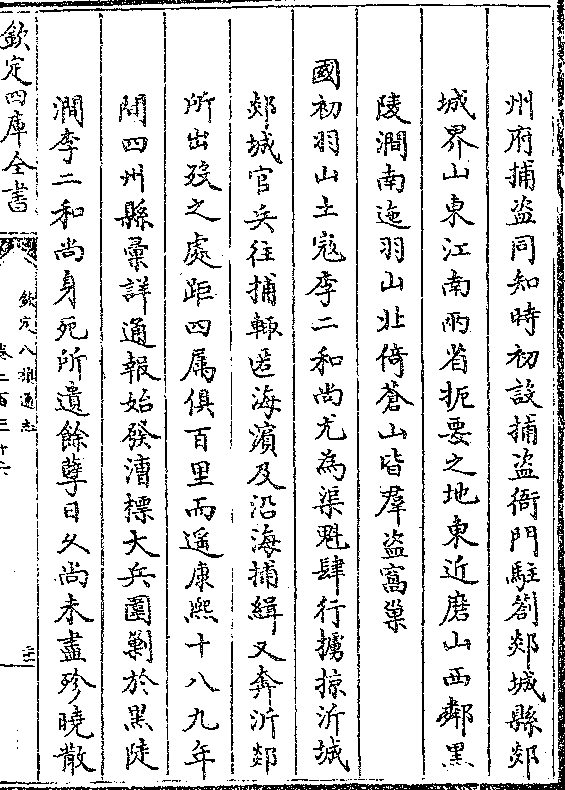 州府捕盜同知時初設捕盜衙門駐劄郯城縣郯
城界山東江南兩省扼要之地東近磨山西鄰黑
陵澗南迤羽山北倚蒼山皆羣盜窩巢
國初羽山土寇李二和尚尤為渠魁肆行擄掠沂城
郯城官兵往捕輙匿海濱及沿海捕緝又奔沂郯
所出歿之處距四屬俱百里而遥康熙十八九年
間四州縣彚詳通報始發漕標大兵圍剿於黑陡
澗李二和尚身死所遺餘孽日久尚未盡殄曉散
欽定四庫全書
欽定八旗通志
卷二百三十六